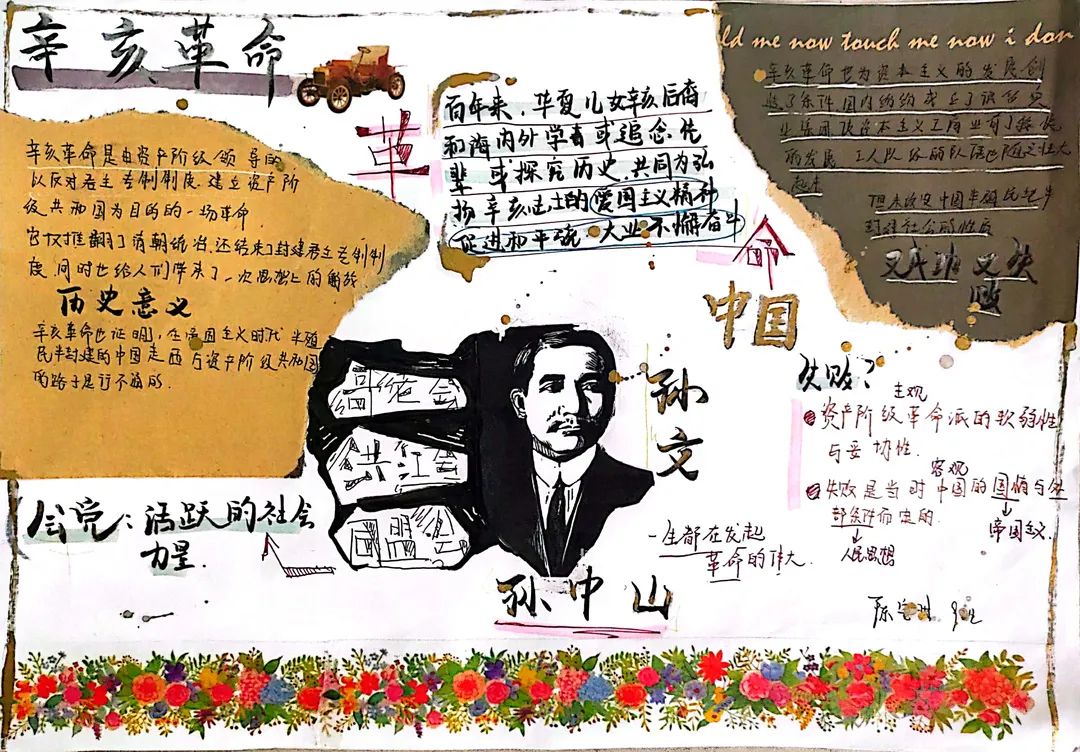 辛亥革命
辛亥革命是由资产阶级领导的
以反对君主专制制度 建立资产阶
级共和国为目的的一场革命
它仅推翻了清朝统治,还结束了封建君主专制制
度,同时也给人们带来了一次思想上的解放.
历史意义
辛亥革命也证明,在帝国主义时代 半殖
民半封建的中国走西与资产阶级共和国
的路子是行不通的.
革
百年来,华夏儿女辛亥后裔
和海内外学者或追念先
辈或探究历史,共同为弘
扬辛亥志士的爱国主义精神
促进和平统一大业不懈奋斗
命
中国
ld me now touch me now i don
辛亥革命也为资本主义的发展创
造了条件,国内纷纷成立了
业集团,民族资本主义工商业有了
的发展,工人队伍的队伍也随之壮大
起来
但未改变中国半殖民地半
封建社会的性质
又成功又失
败
哥老会
共江会
同盟会
孙
文
会党:活跃的社会
力量.
孙中山
一生都在发起
革命的伟大.
失败?
主观
资产阶级革命派的软弱性
与妥协性.
客观
失败是当时中国的国情与外
部条件而定的.
帝国主义.
人民思想